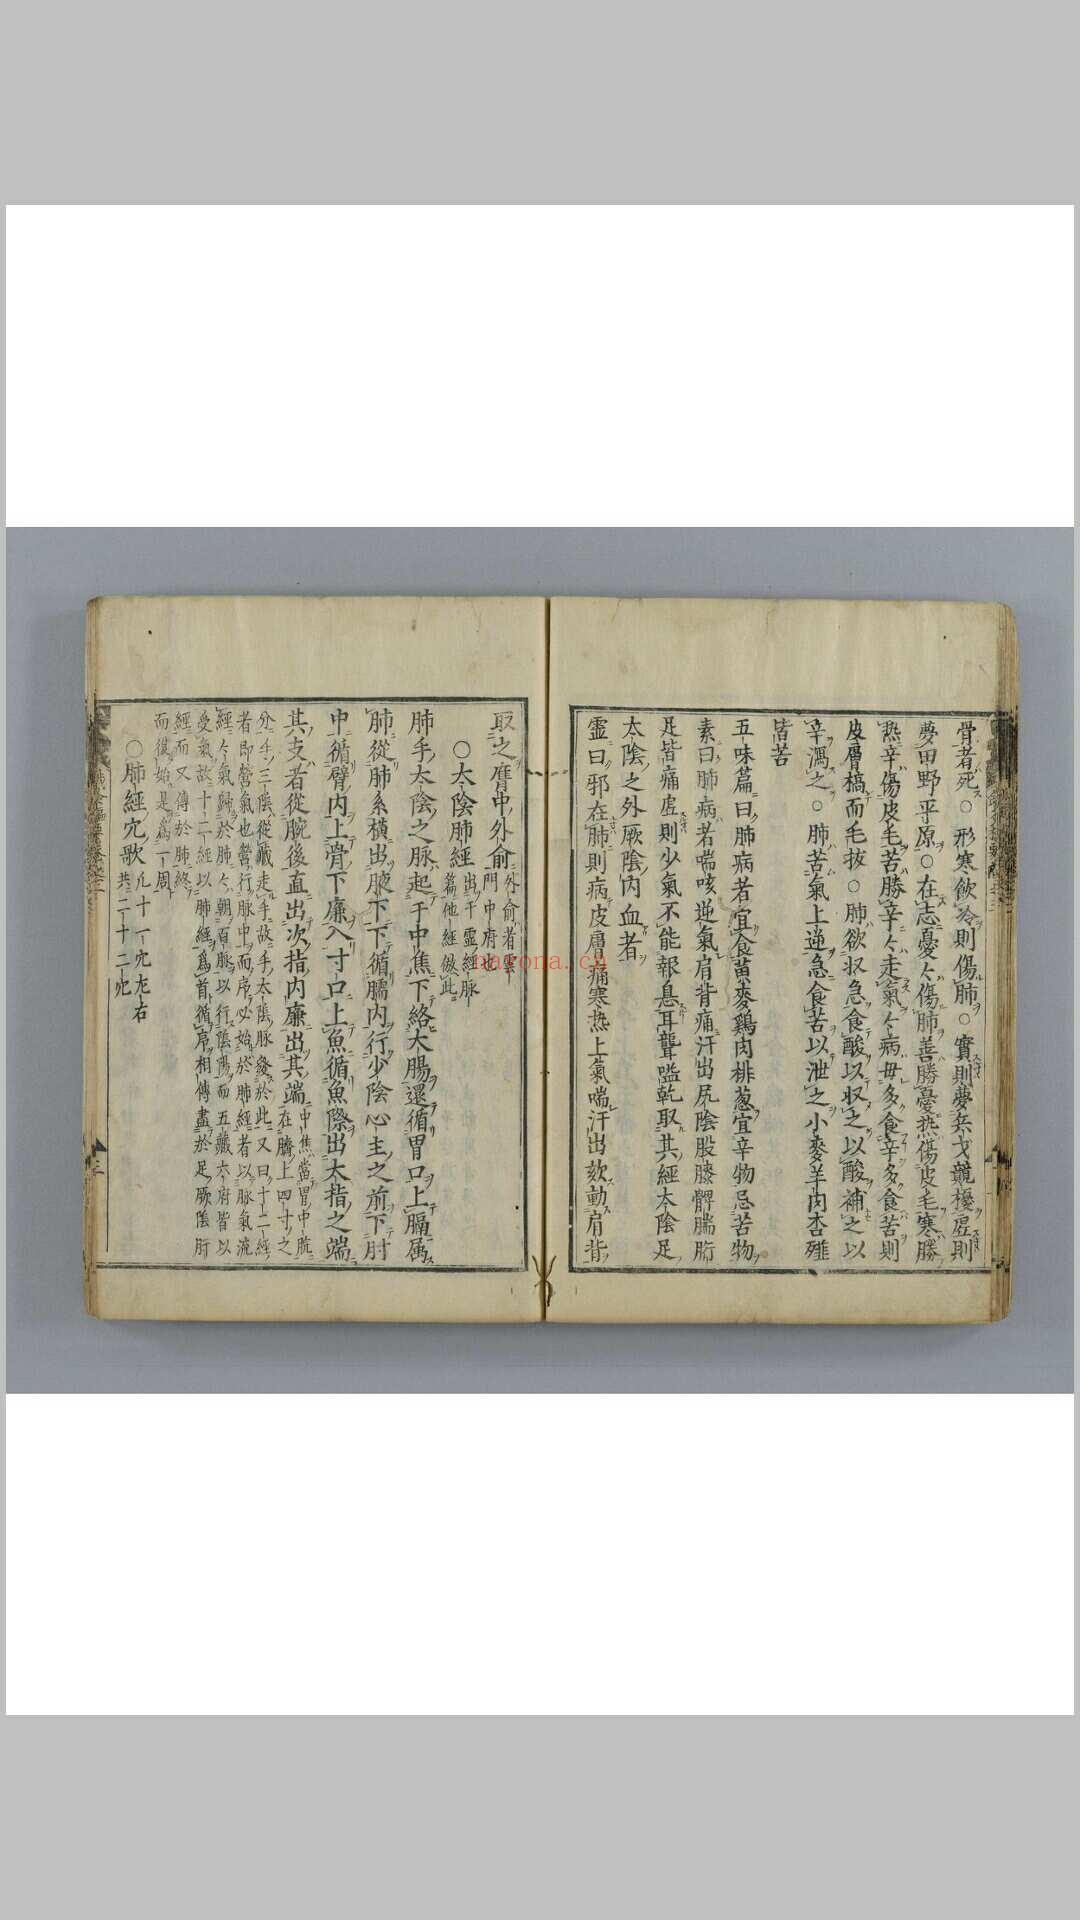 骨者死○形寒飲冷則傷肺○實則夢兵戈競擾虛則
夢田野平原○在志憂々傷肺善勝憂热傷皮毛寒勝
热辛傷皮毛苦勝辛々走氣々病毋多食辛多食苦則
皮膚槁而毛拔○肺欲收急食酸以收之以酸補之以
辛瀉之○肺苦氣上逆急食苦以泄之小麥羊肉杏薤
皆苦
五味篇曰肺病者宜食黄麥鷄肉桃葱宜辛物忌苦物
素曰肺病者喘咳逆氣肩背痛汗出尻陰股膝髀腨胻
足皆痛虛則少氣不能報息耳聾嗌乾取其經太陰足
太陰之外厥陰內血者
霊曰邪在肺則病皮膚痛寒热上氣喘汗出欬動肩背
取之膺中外俞外俞者雲門中府也
○太陰肺經出于靈經脉篇他經倣此
肺手太陰之脉起于中焦下絡大腸還循胃口上膈属
肺從肺系横出腋下下循臑内行少陰心主之前下肘
中循臂内上骨下廉入寸口上魚循魚際出大指之端
其支者從腕後直出次指内廉出其端中焦當胃中脘在臍上四寸之
分手三陰從藏走手故手太陰脉發於此又曰十二經
者即營氣也營行脉中而序必始於肺經者以脉氣流
經々氣歸於肺々朝百脉以行陰陽而五藏六府皆以
受氣故十二經以肺經為首循序相傳盡於足厥陰肝
經而又傳於肺終
而復始是為一周
○肺經穴歌凡十一穴左右共二十二穴
三
nayona.cn